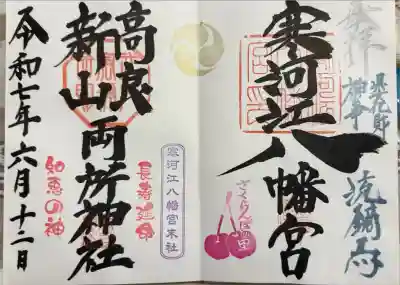 奉拝
寒河江八幡宮
さくらんぼの里
高良
新山両所神社
長寿延命
知恵の神
寒河江八幡宮末社
令和七年六月十二日